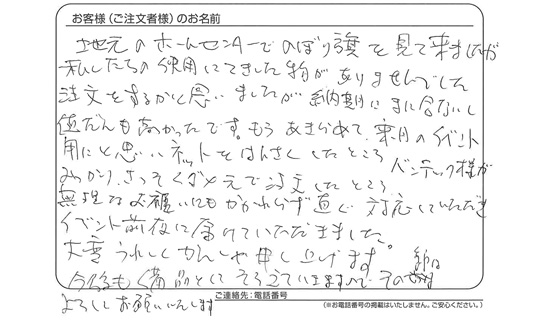 お客様（ご注文者様）のお名前
地元のホームセンターでのぼり旗を見て来ましたが
私したちの使用にてきした物がありませんでした
注文をするかと思いましたが納期にまに合ないし
値だんも高かったです。もうあきらめて、来月のイベント
用にと思いネットをけんさくしたところ バンテック様が
みつかり、さっそくダメ元で注文したところ
無理なお願いにもかかわらず直ぐ対応していただき
イベント前夜に届けていただきました。
大変うれしくかんしゃ申し上げます。
今後も備品としてそろえていきますので その 節は
よろしくお願いいたします
ご連絡先：電話番号
（※お電話番号の掲載はいたしません。ご安心ください。）